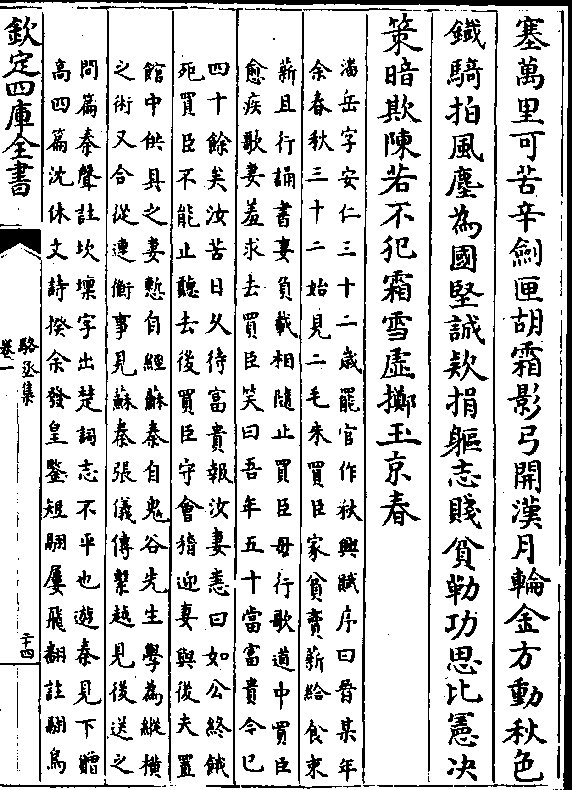 塞萬里可苦辛劍匣胡霜影弓開漢月輪金方動秋色
鐵騎拍風塵為國堅誠欵捐軀志賤貧勒功思比憲决
策暗欺陳若不犯霜雪虛擲玉京春
潘岳字安仁三十二歲罷官作秋興賦序曰晉某年
余春秋三十二始見二毛朱買臣家貧賣薪給食束
薪且行誦書妻負載相隨止買臣毋行歌道中買臣
愈疾歌妻羞求去買臣笑曰吾年五十當富貴今已
四十餘矣汝苦日久待富貴報汝妻恚曰如公終餓
死買臣不能止聽去後買臣守會稽迎妻與後夫置
館中供具之妻慙自經蘇秦自鬼谷先生學為縱横
之術又合從連衡事見蘇秦張儀傳繫越見後送之
問篇秦聲註坎壈字出楚詞志不平也遊秦見下贈
高四篇沈休文詩揆余發皇鑒短翮屢飛翻註翮鳥
欽定四庫全書
駱丞集
卷一
二十四